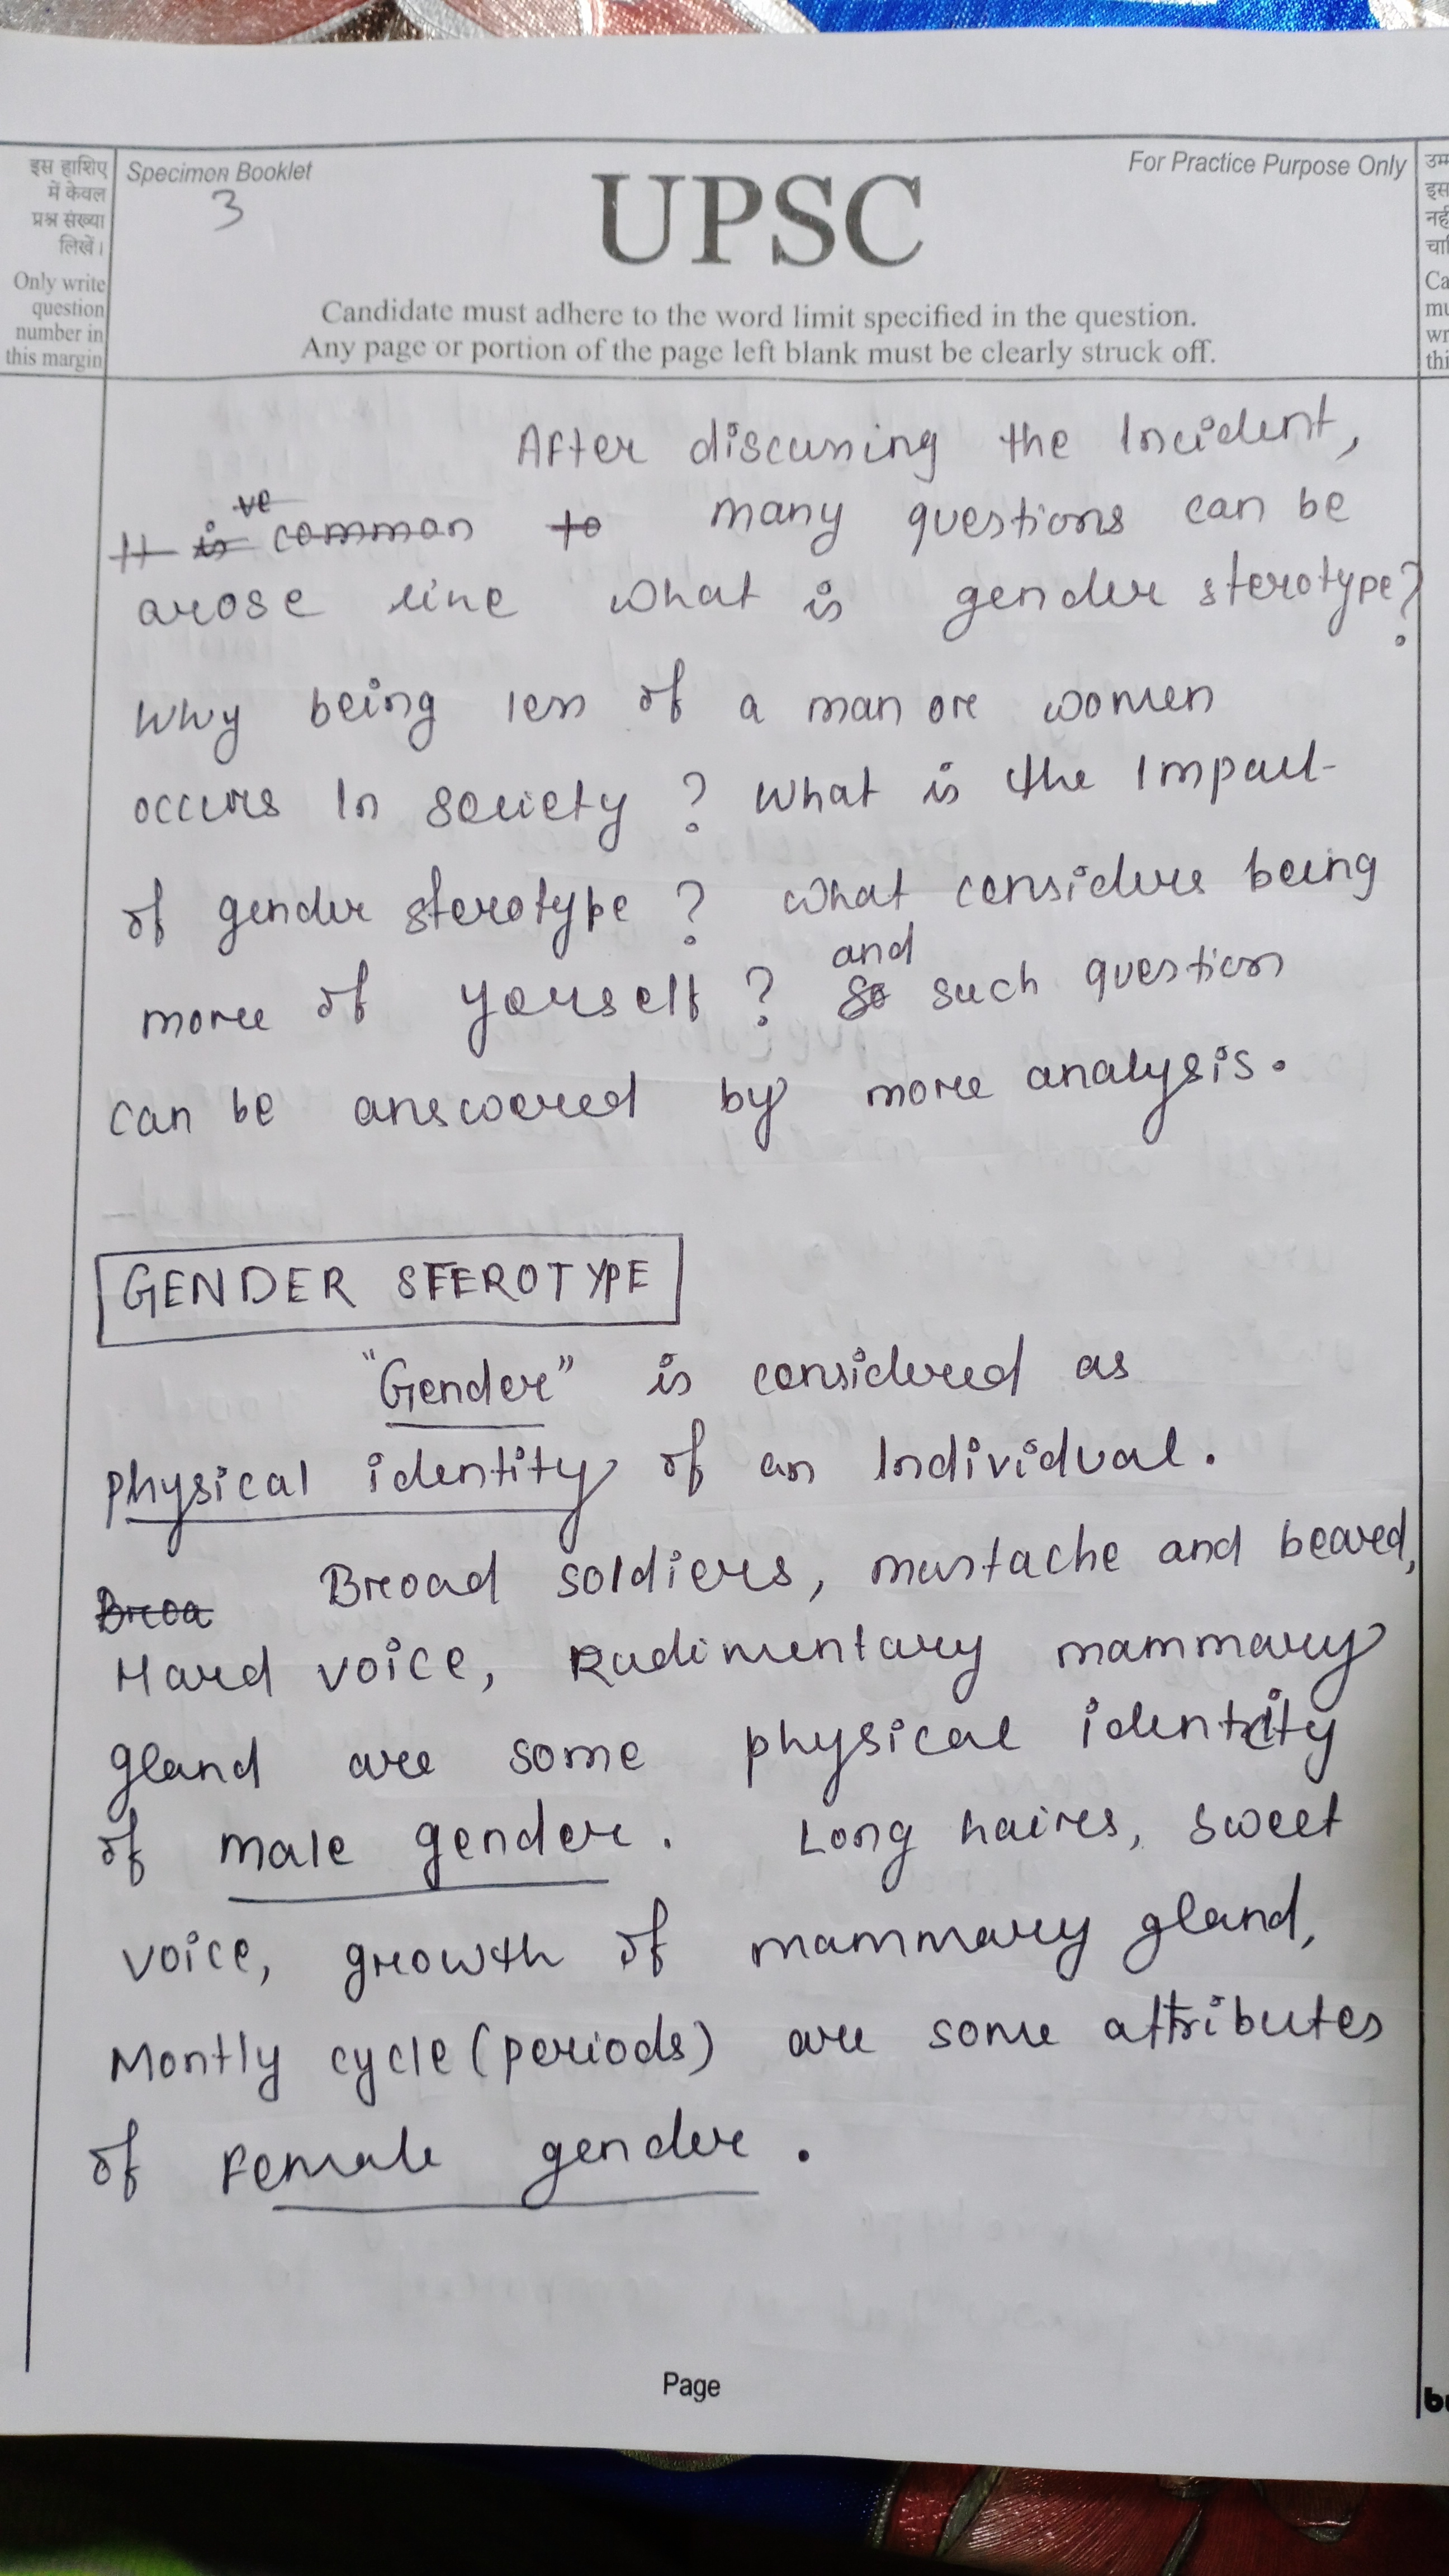 इस हाशिए
में केवल
प्रश्न संख्या
लिखें।
Only write
question
number in
this margin
Specimen Booklet
3
UPSC
For Practice Purpose Only
Candidate must adhere to the word limit specified in the question.
Any page or portion of the page left blank must be clearly struck off.
After discussing the Incident,
It is common to many questions can be
arose like what is gender sterotype?
Why being less of a man or women
occurs In society ? What is the Impact
of gender sterotype ? What considers being
more of yourself ? and such question
can be answered by more analysis.
GENDER STEROTYPE
"Gender" is considered as
physical identity of an Individual.
Broa Broad soldiers, mustache and beared,
Hard voice, Rudimentary mammary
gland are some physical identity
of male gender. Long haires, sweet
voice, growth of mammary gland,
Montly cycle (periods) are some attributes
of Female gender.
Page